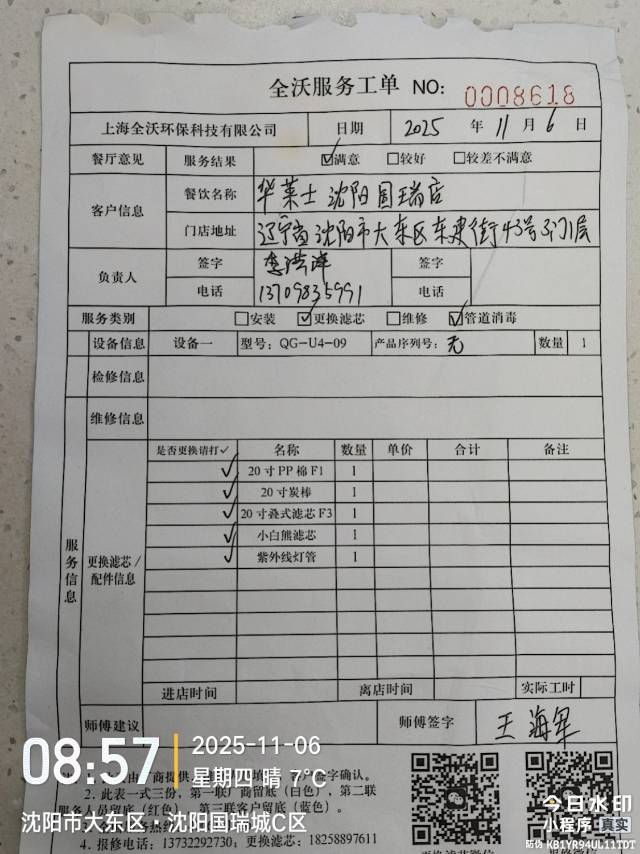 全沃服务工单 NO: 0008618
上海全沃环保科技有限公司 日期 2025 年 11 月 6 日
餐厅意见 服务结果 ☑满意 □较好 □较差不满意
客户信息 餐饮名称 华莱士 沈阳国瑞店
门店地址 辽宁省沈阳市大东区东建街43号3门1层
负责人 签字 李洪洋 签字
电话 13709835991 电话
服务类别 □安装 ☑更换滤芯 □维修 ☑管道消毒
设备信息 设备一 型号: QG-U4-09 产品序列号: 无 数量 1
检修信息
维修信息
服务信息
更换滤芯/配件信息
是否更换请打✓ 名称 数量 单价 合计 备注
✓ 20寸PP棉F1 1
✓ 20寸炭棒 1
✓ 20寸叠式滤芯F3 1
✓ 小白熊滤芯 1
✓ 紫外线灯管 1
进店时间 离店时间 实际工时
师傅建议 师傅签字 王海军
签字确认。
2. 此表一式三份,第一联厂商留底(白色),第二联
服务人员留底(红色),第三联客户留底(蓝色)。
4. 报修电话: 13732292730; 18258897611
08:57
2025-11-06
星期四 晴 7℃
沈阳市大东区·沈阳国瑞城C区
今日水印
小程序 真实
防伪 KB1YR94UL11TDT